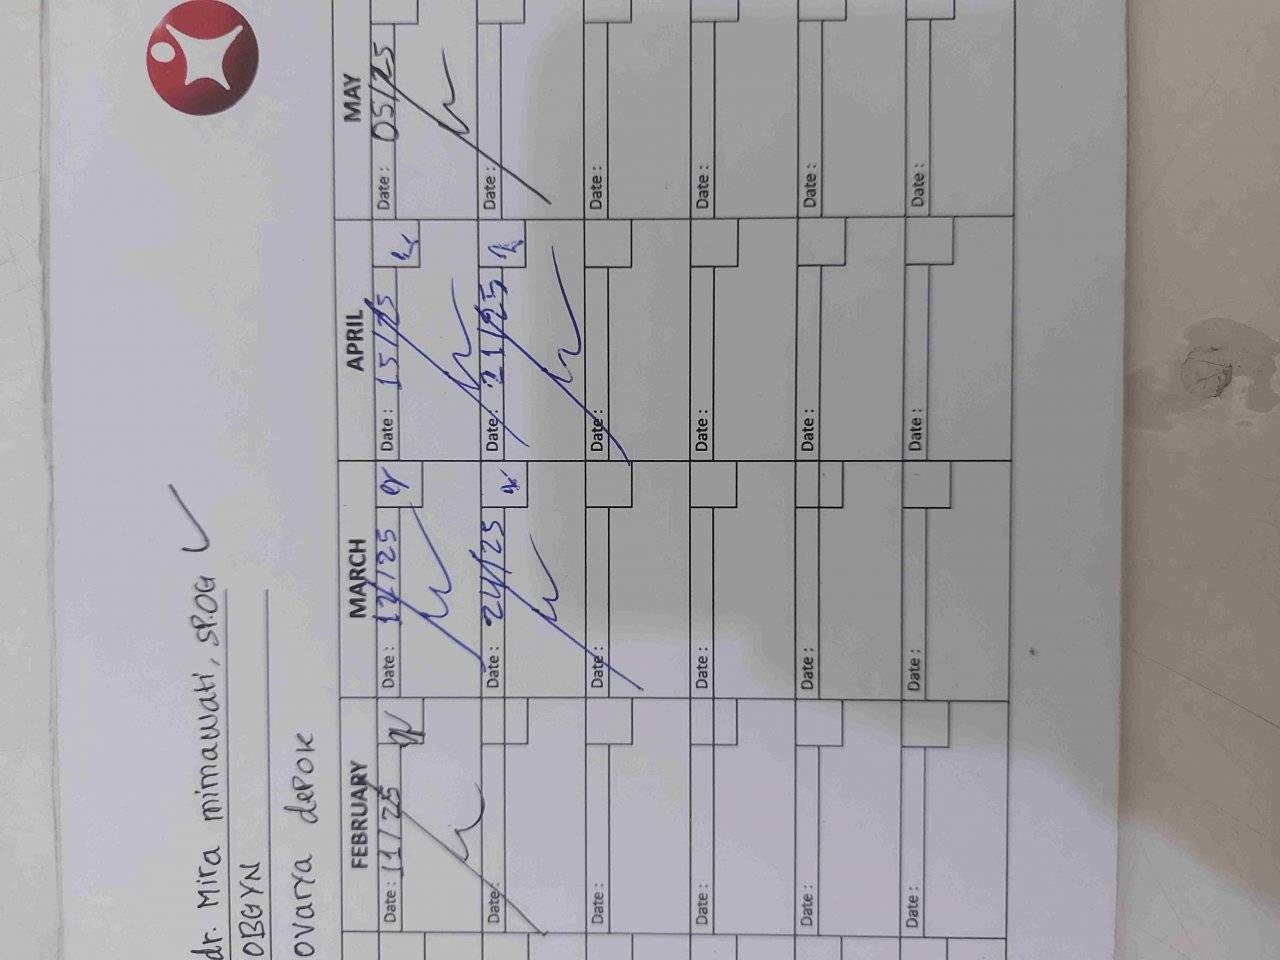 dr. Mira mirnawati, SP.OG
OBGYN
ovarya depok
FEBRUARY MARCH APRIL MAY
Date : 11/25 Date : 12/25 Date : 15/25 Date : 05/25
Date : Date : 24/25 Date : 21/25 Date :
Date : Date : Date : Date :
Date : Date : Date : Date :
Date : Date : Date : Date :
Date : Date : Date : Date :